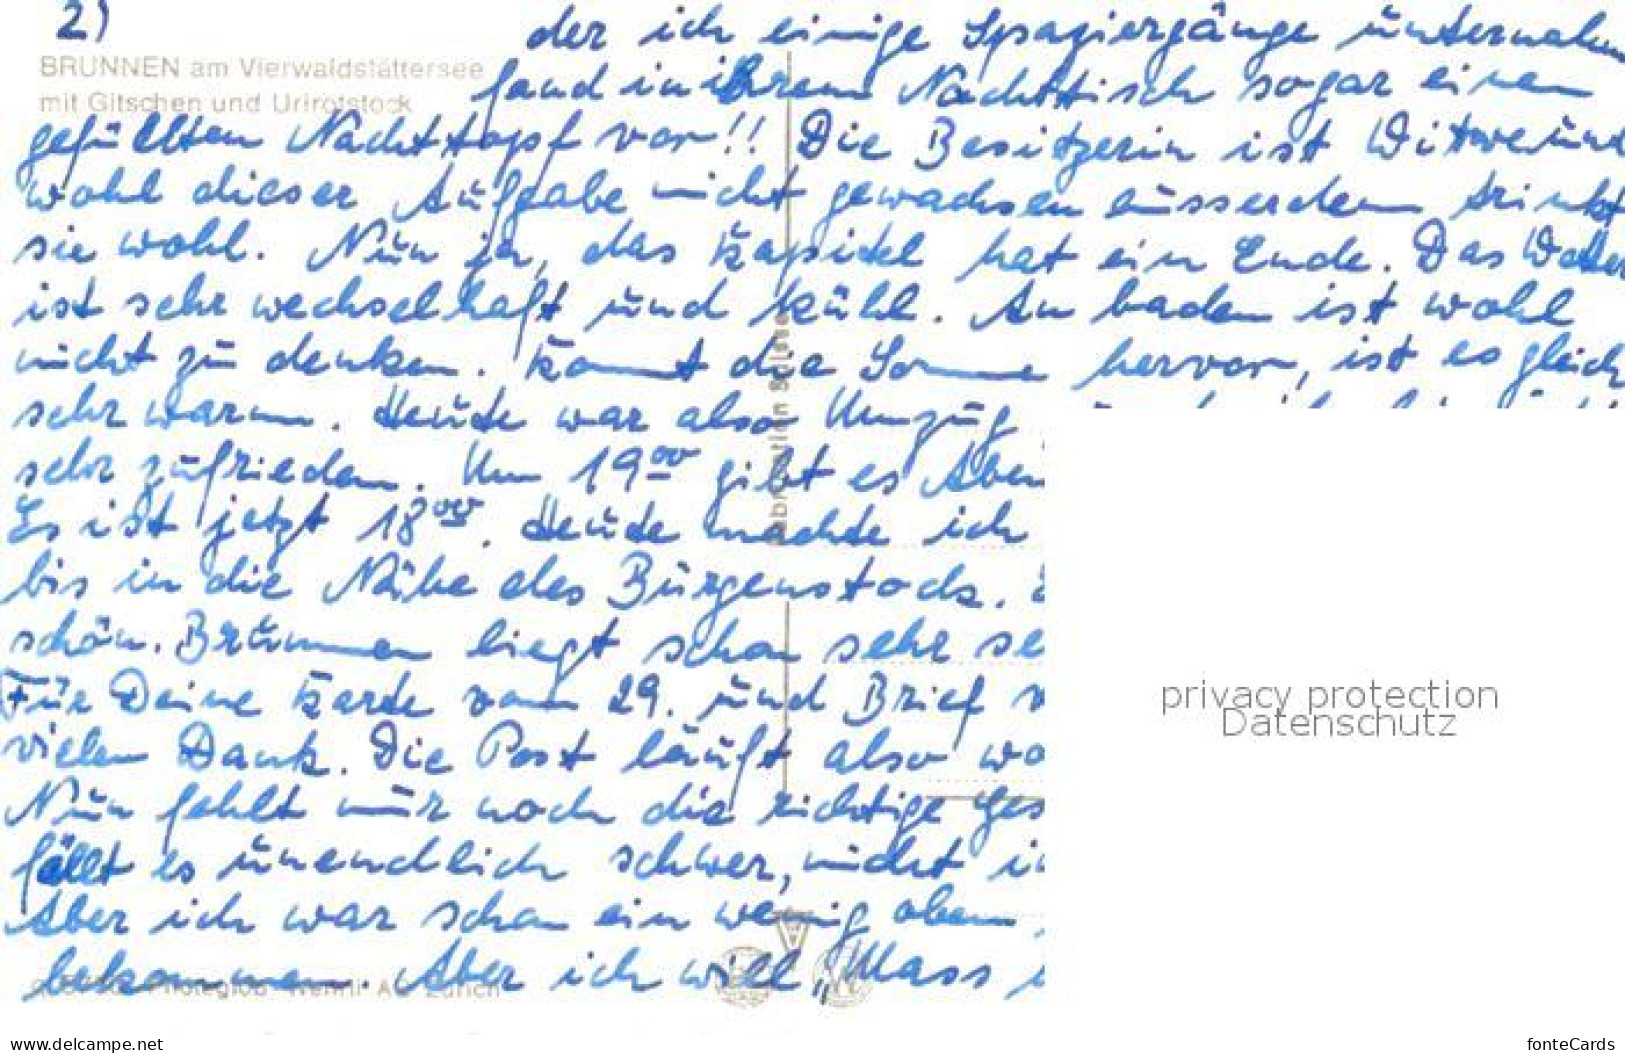 2)
BRUNNEN am Vierwaldstättersee
mit Gitschen und Urirotstock
der ich einige Spaziergänge unternahm
fand in ihrem Nachttisch sogar einen
gefüllten Nachttopf vor!! Die Besitzerin ist Witwe und
wohl dieser Aufgabe nicht gewachsen ausserdem trinkt
sie wohl. Nun ja, das Kapitel hat ein Ende. Das Wetter
ist sehr wechselhaft und kühl. An baden ist wohl
nicht zu denken. Kommt die Sonne hervor, ist es gleich
sehr warm. Heute war also Umzug
sehr zufrieden. Um 19⁰⁰ gibt es Aben
Es ist jetzt 18⁰⁰. Heute machte ich
bis in die Nähe des Bürgenstocks.
schön. Brunnen liegt schon sehr se
Für Deine Karte vom 29. und Brief v
vielen Dank. Die Post läuft also wo
Nun fehlt mir noch die richtige Ges
fällt es unendlich schwer, nicht i
Aber ich war schon ein wenig oben
bekommen. Aber ich will „Mass
Photoglob-Wehrli AG Zürich
privacy protection
Datenschutz
www.delcampe.net
fonteCards